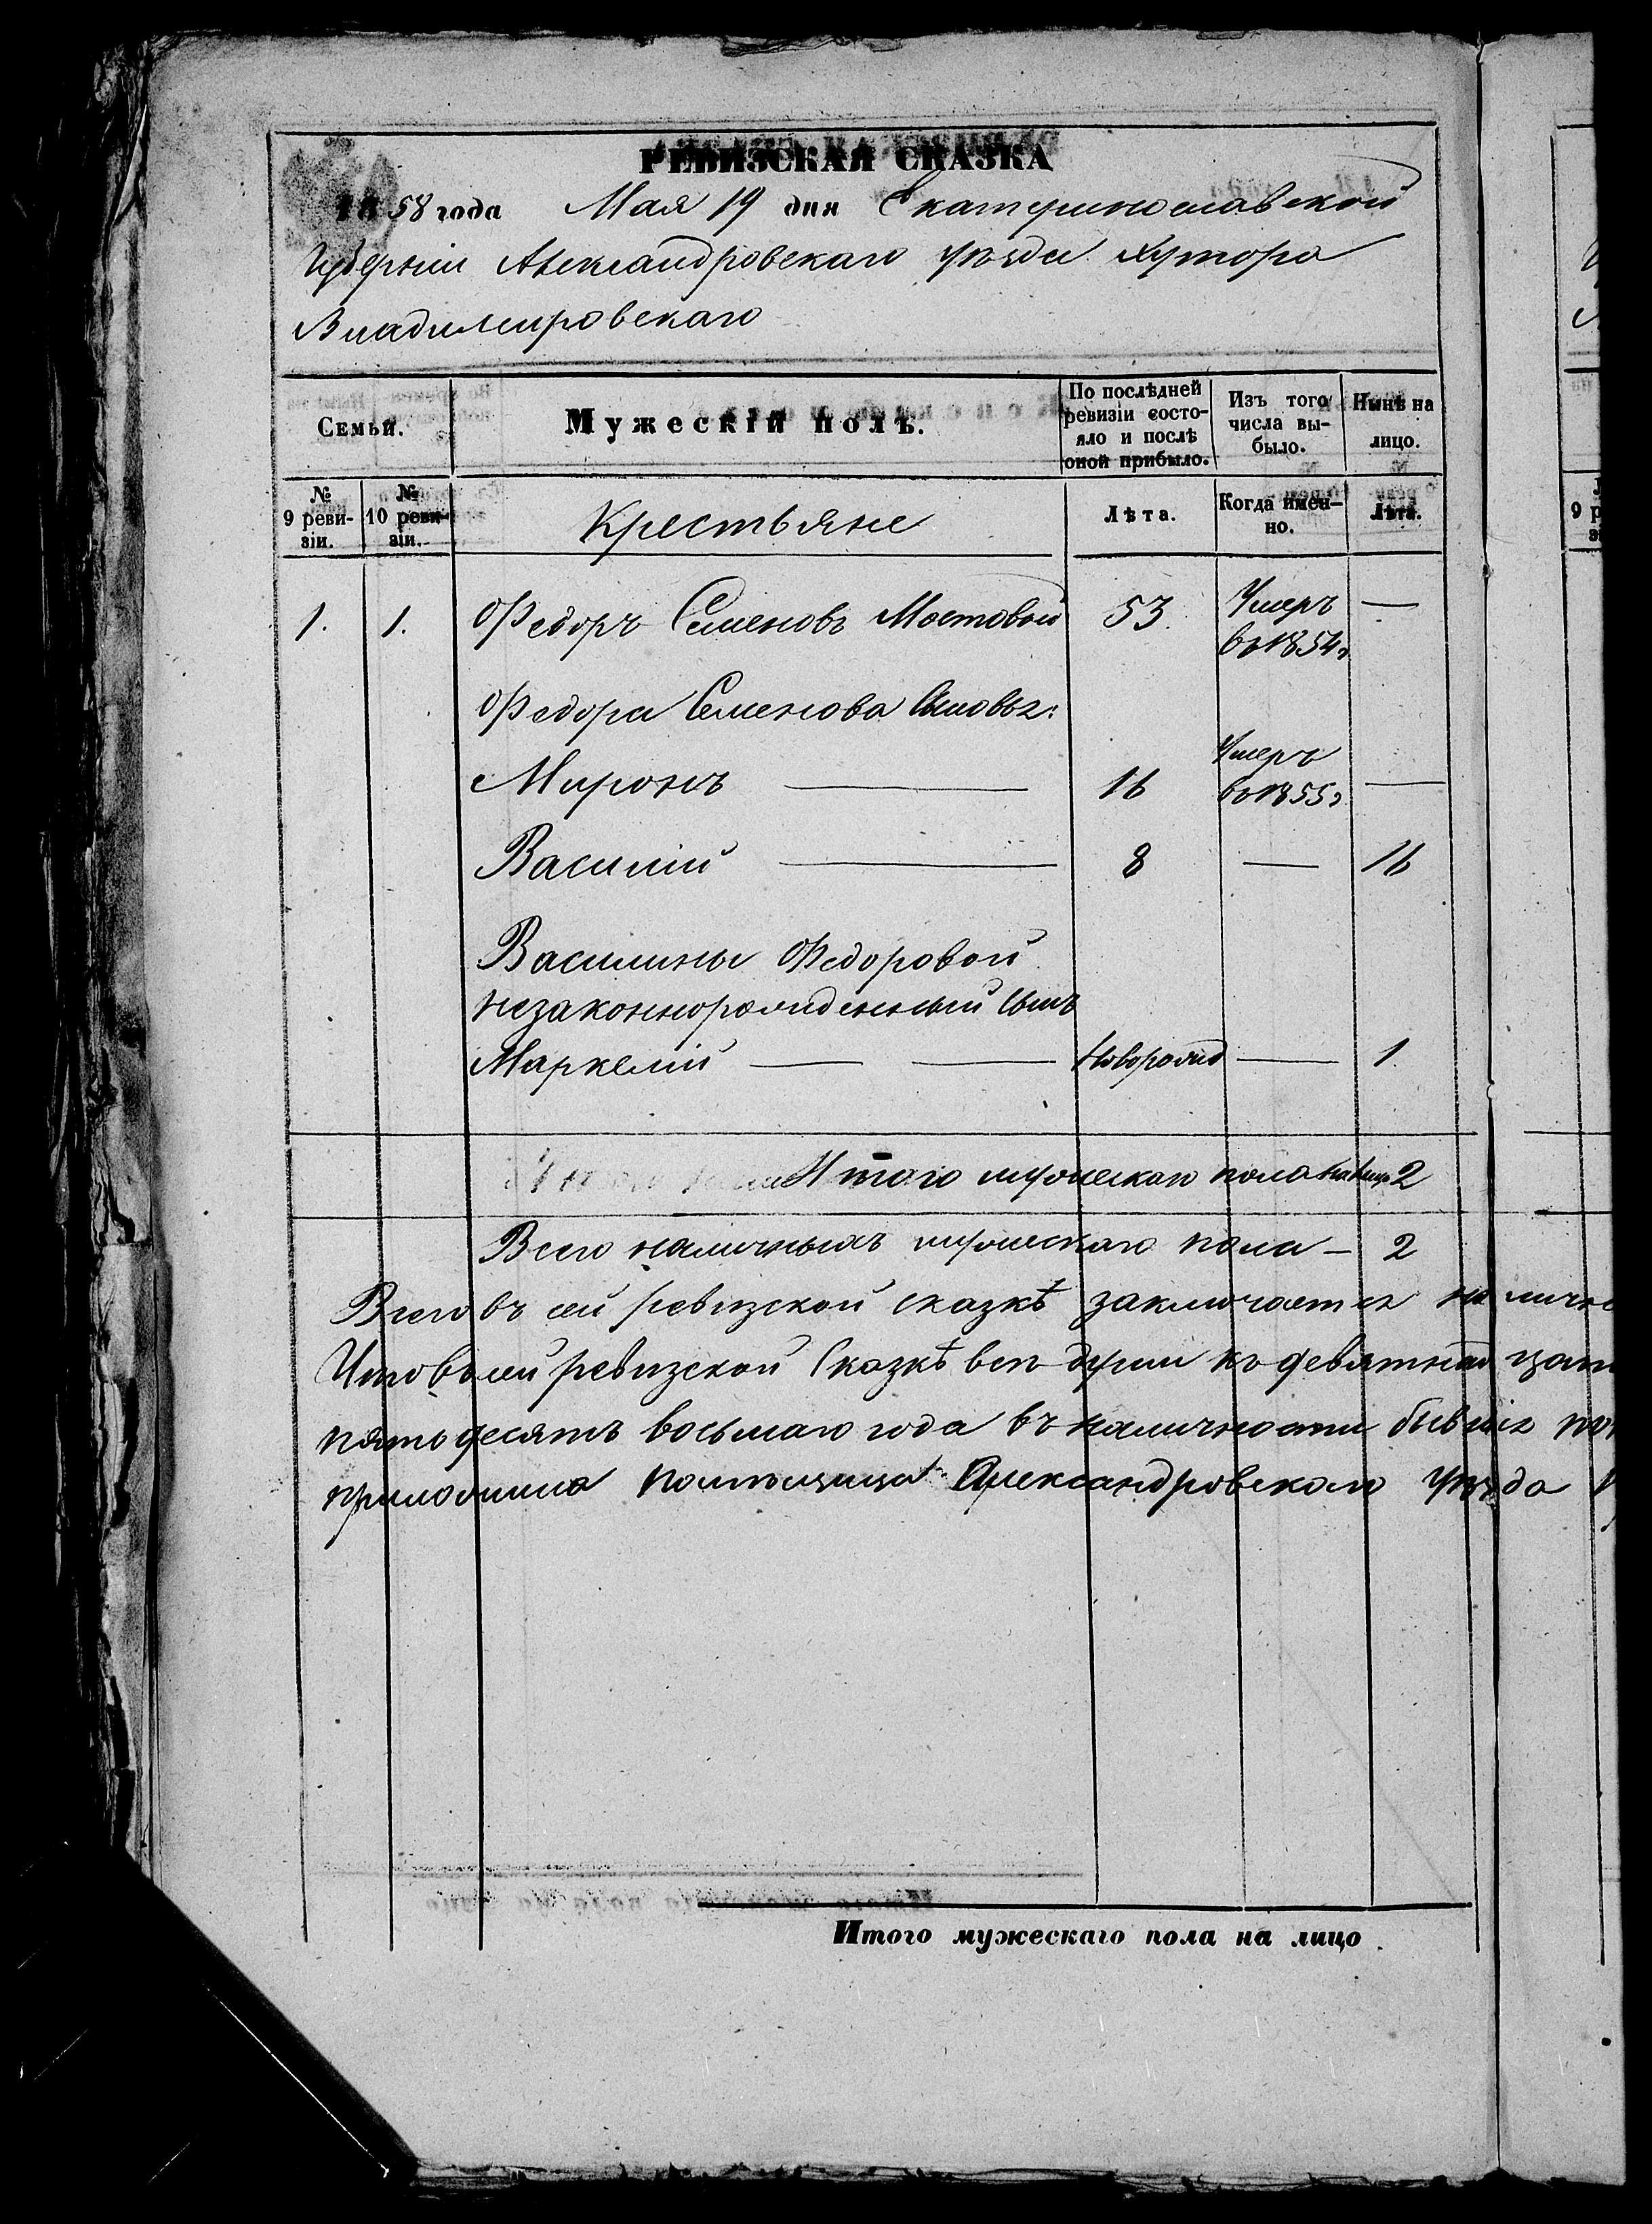 РЕВИЗСКАЯ СКАЗКА
1858 года Мая 19 дня Екатеринославской
Губерніи Александровскаго уѣзда Хутора
Владимировскаго
Семьи. Мужескій полъ. По послѣдней ревизіи состояло и послѣ оной прибыло. Изъ того числа выбыло. Нынѣ на лицо.
№ 9 ревизіи. № 10 ревизіи. Крестьяне Лѣта. Когда именно. Лѣта.
1. 1. Федоръ Семеновъ Мостовой 53. Умеръ въ 1854 г —
Федора Семенова Сыновья:
Миронъ — 16 Умеръ въ 1855 г —
Василій — 8 — 16
Василины Федоровой
незаконнорожденный Сынъ
Маркелій — — Новорожд — 1.
Итого мужескаго пола на лицо 2
Всего наличныхъ мужескаго пола — 2
Всего въ сей ревизской сказкѣ заключается налично
Что въ сей ревизской Сказкѣ всѣ души къ девятнадцат
пятьдесятъ восьмаго года въ наличности бывшія
приложила помѣщица Александровскаго уѣзда
Итого мужескаго пола на лицо.
9